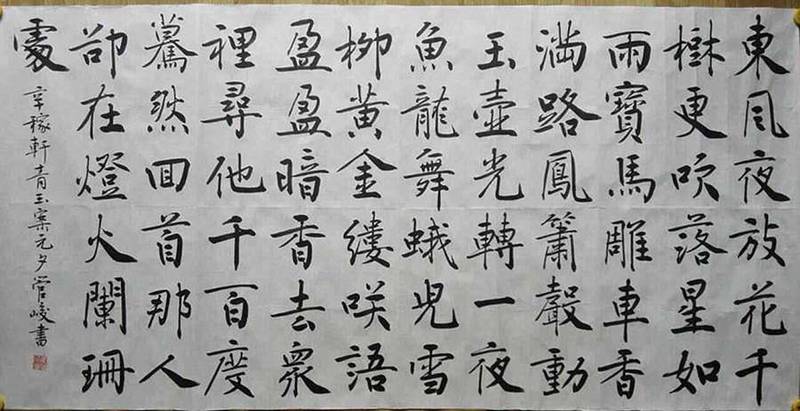 東風夜放花千
樹更吹落星如
雨寶馬雕車香
滿路鳳簫聲動
玉壺光轉一夜
魚龍舞蛾兒雪
柳黃金縷咲語
盈盈暗香去眾
裡尋他千百度
驀然回首那人
卻在燈火闌珊
處
辛稼軒青玉案元夕管峻書